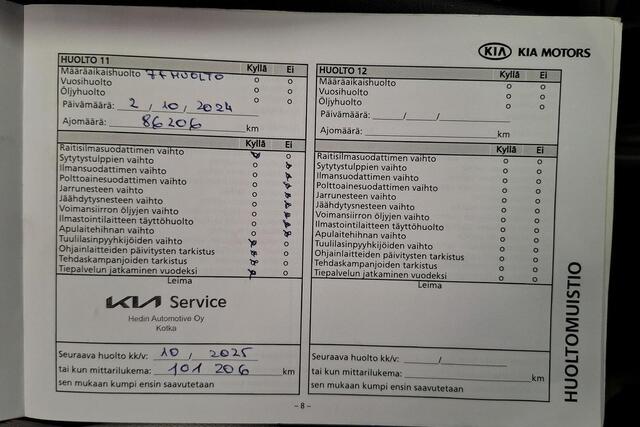 KIA KIA MOTORS
HUOLTO 11 Kyllä Ei
Määräaikaishuolto
HUOLTO
Vuosihuolto
Öljyhuolto
Päivämäärä: 2 / 10 / 2024
Ajomäärä: 86206 km
Kyllä Ei
Raitisilmasuodattimen vaihto
Sytytystulppien vaihto
Ilmansuodattimen vaihto
Polttoainesuodattimen vaihto
Jarrunesteen vaihto
Jäähdytysnesteen vaihto
Voimansiirron öljyjen vaihto
Ilmastointilaitteen täyttöhuolto
Apulaitehihnan vaihto
Tuulilasinpyyhkijöiden vaihto
Ohjainlaitteiden päivitysten tarkistus
Tehdaskampanjoiden tarkistus
Tiepalvelun jatkaminen vuodeksi
Leima
KIA Service
Hedin Automotive Oy
Kotka
Seuraava huolto kk/v: 10 / 2025
tai kun mittarilukema: 101 206 km
sen mukaan kumpi ensin saavutetaan
HUOLTO 12 Kyllä Ei
Määräaikaishuolto
Vuosihuolto
Öljyhuolto
Päivämäärä: / /
Ajomäärä: km
Kyllä Ei
Raitisilmasuodattimen vaihto
Sytytystulppien vaihto
Ilmansuodattimen vaihto
Polttoainesuodattimen vaihto
Jarrunesteen vaihto
Jäähdytysnesteen vaihto
Voimansiirron öljyjen vaihto
Ilmastointilaitteen täyttöhuolto
Apulaitehihnan vaihto
Tuulilasinpyyhkijöiden vaihto
Ohjainlaitteiden päivitysten tarkistus
Tehdaskampanjoiden tarkistus
Tiepalvelun jatkaminen vuodeksi
Leima
Seuraava huolto kk/v: /
tai kun mittarilukema: km
sen mukaan kumpi ensin saavutetaan
HUOLTOMUISTIO
– 8 –